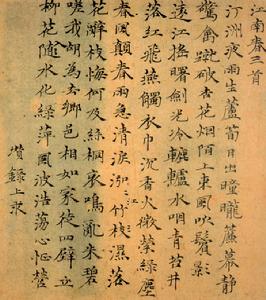 江南春三首
汀洲夜雨生蘆筍日出曈曨簾幕靜
驚禽蹴破杏花烟陌上東風吹鬢影
遠江搖曙劍光冷轆轤水咽青苔井
落紅飛燕觸衣巾沉香火微縈綠塵
春風顛春雨急清淚泓泓江竹枝濕落
花辭枝悔何及絲桐哀鳴亂朱碧
嗟我胡為去鄉邑相如家徒四壁立
柳花隨水化綠萍風波浩蕩心怔營
瓚錄上求